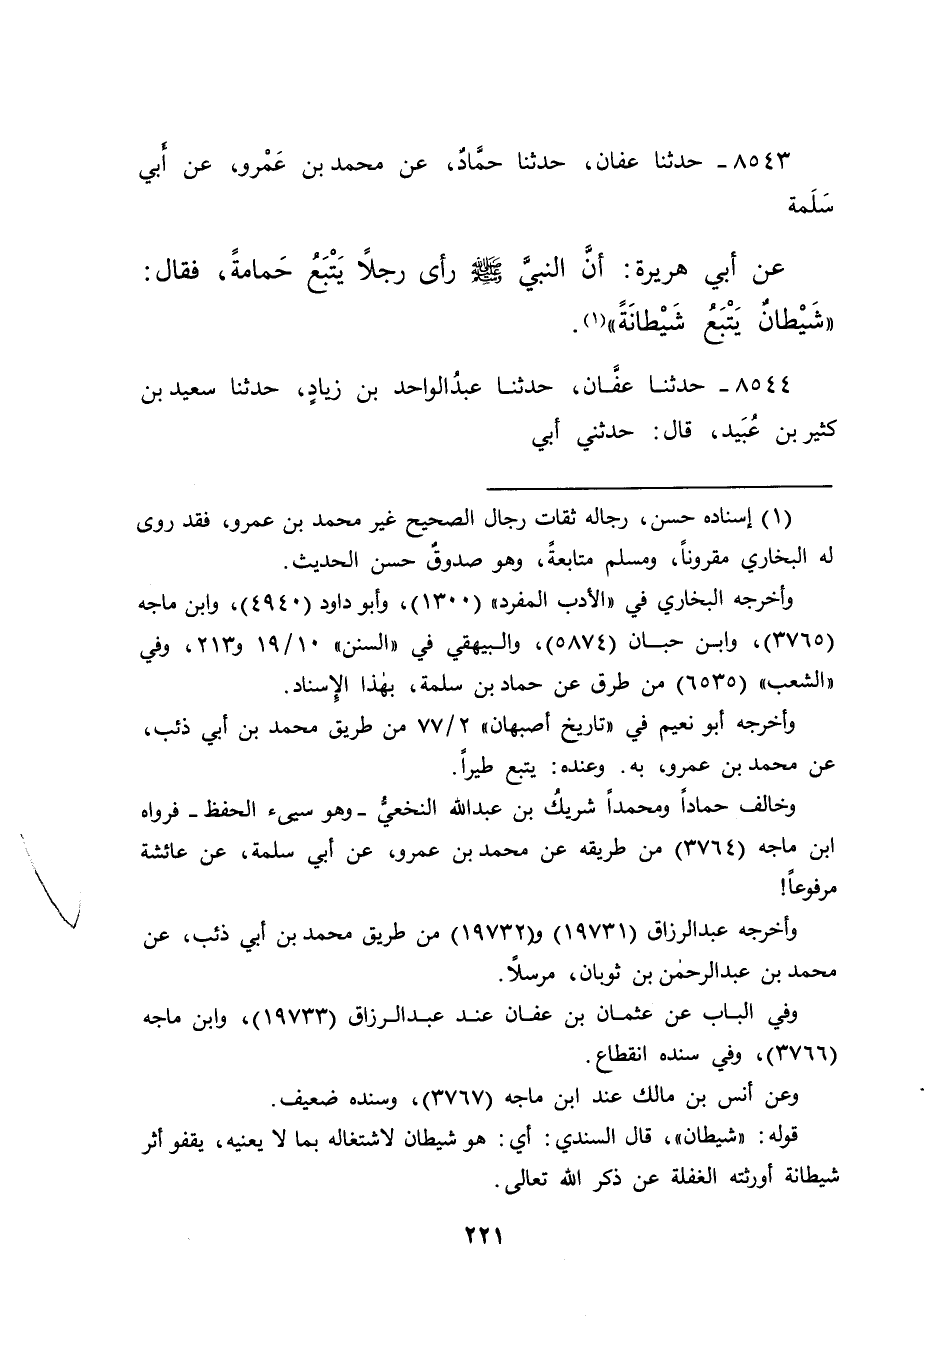 ٨٥٤٣ ـ حدثنا عفان، حدثنا حمَّادٌ، عن محمد بن عَمْرو، عن أَبي
سَلَمة
عن أبي هريرة: أنَّ النبيَّ ﷺ رأى رجلاً يَتْبَعُ حَمامةً، فقال:
«شَيْطانٌ يَتْبَعُ شَيْطانَةً»(١).
٨٥٤٤ ـ حدثنا عفَّان، حدثنا عبدُالواحد بن زيادٍ، حدثنا سعيد بن
كثير بن عُبَيد، قال: حدثني أبي
(١) إسناده حسن، رجاله ثقات رجال الصحيح غير محمد بن عمرو، فقد روى
له البخاري مقروناً، ومسلم متابعةً، وهو صدوقٌ حسن الحديث.
وأخرجه البخاري في «الأدب المفرد» (١٣٠٠)، وأبو داود (٤٩٤٠)، وابن ماجه
(٣٧٦٥)، وابن حبان (٥٨٧٤)، والبيهقي في «السنن» ١٩/١٠ و٢١٣، وفي
«الشعب» (٦٥٣٥) من طرق عن حماد بن سلمة، بهٰذا الإسناد.
وأخرجه أبو نعيم في «تاريخ أصبهان» ٧٧/٢ من طريق محمد بن أبي ذئب،
عن محمد بن عمرو، به. وعنده: يتبع طيراً.
وخالف حماداً ومحمداً شريكُ بن عبدالله النخعيُّ ـ وهو سيىء الحفظ ـ فرواه
ابن ماجه (٣٧٦٤) من طريقه عن محمد بن عمرو، عن أبي سلمة، عن عائشة
مرفوعاً!
وأخرجه عبدالرزاق (١٩٧٣١) و(١٩٧٣٢) من طريق محمد بن أبي ذئب، عن
محمد بن عبدالرحمٰن بن ثوبان، مرسلاً.
وفي الباب عن عثمان بن عفان عند عبدالرزاق (١٩٧٣٣)، وابن ماجه
(٣٧٦٦)، وفي سنده انقطاع.
وعن أنس بن مالك عند ابن ماجه (٣٧٦٧)، وسنده ضعيف.
قوله: «شيطان»، قال السندي: أي: هو شيطان لاشتغاله بما لا يعنيه، يقفو أثر
شيطانة أورثته الغفلة عن ذكر الله تعالى.
٢٢١